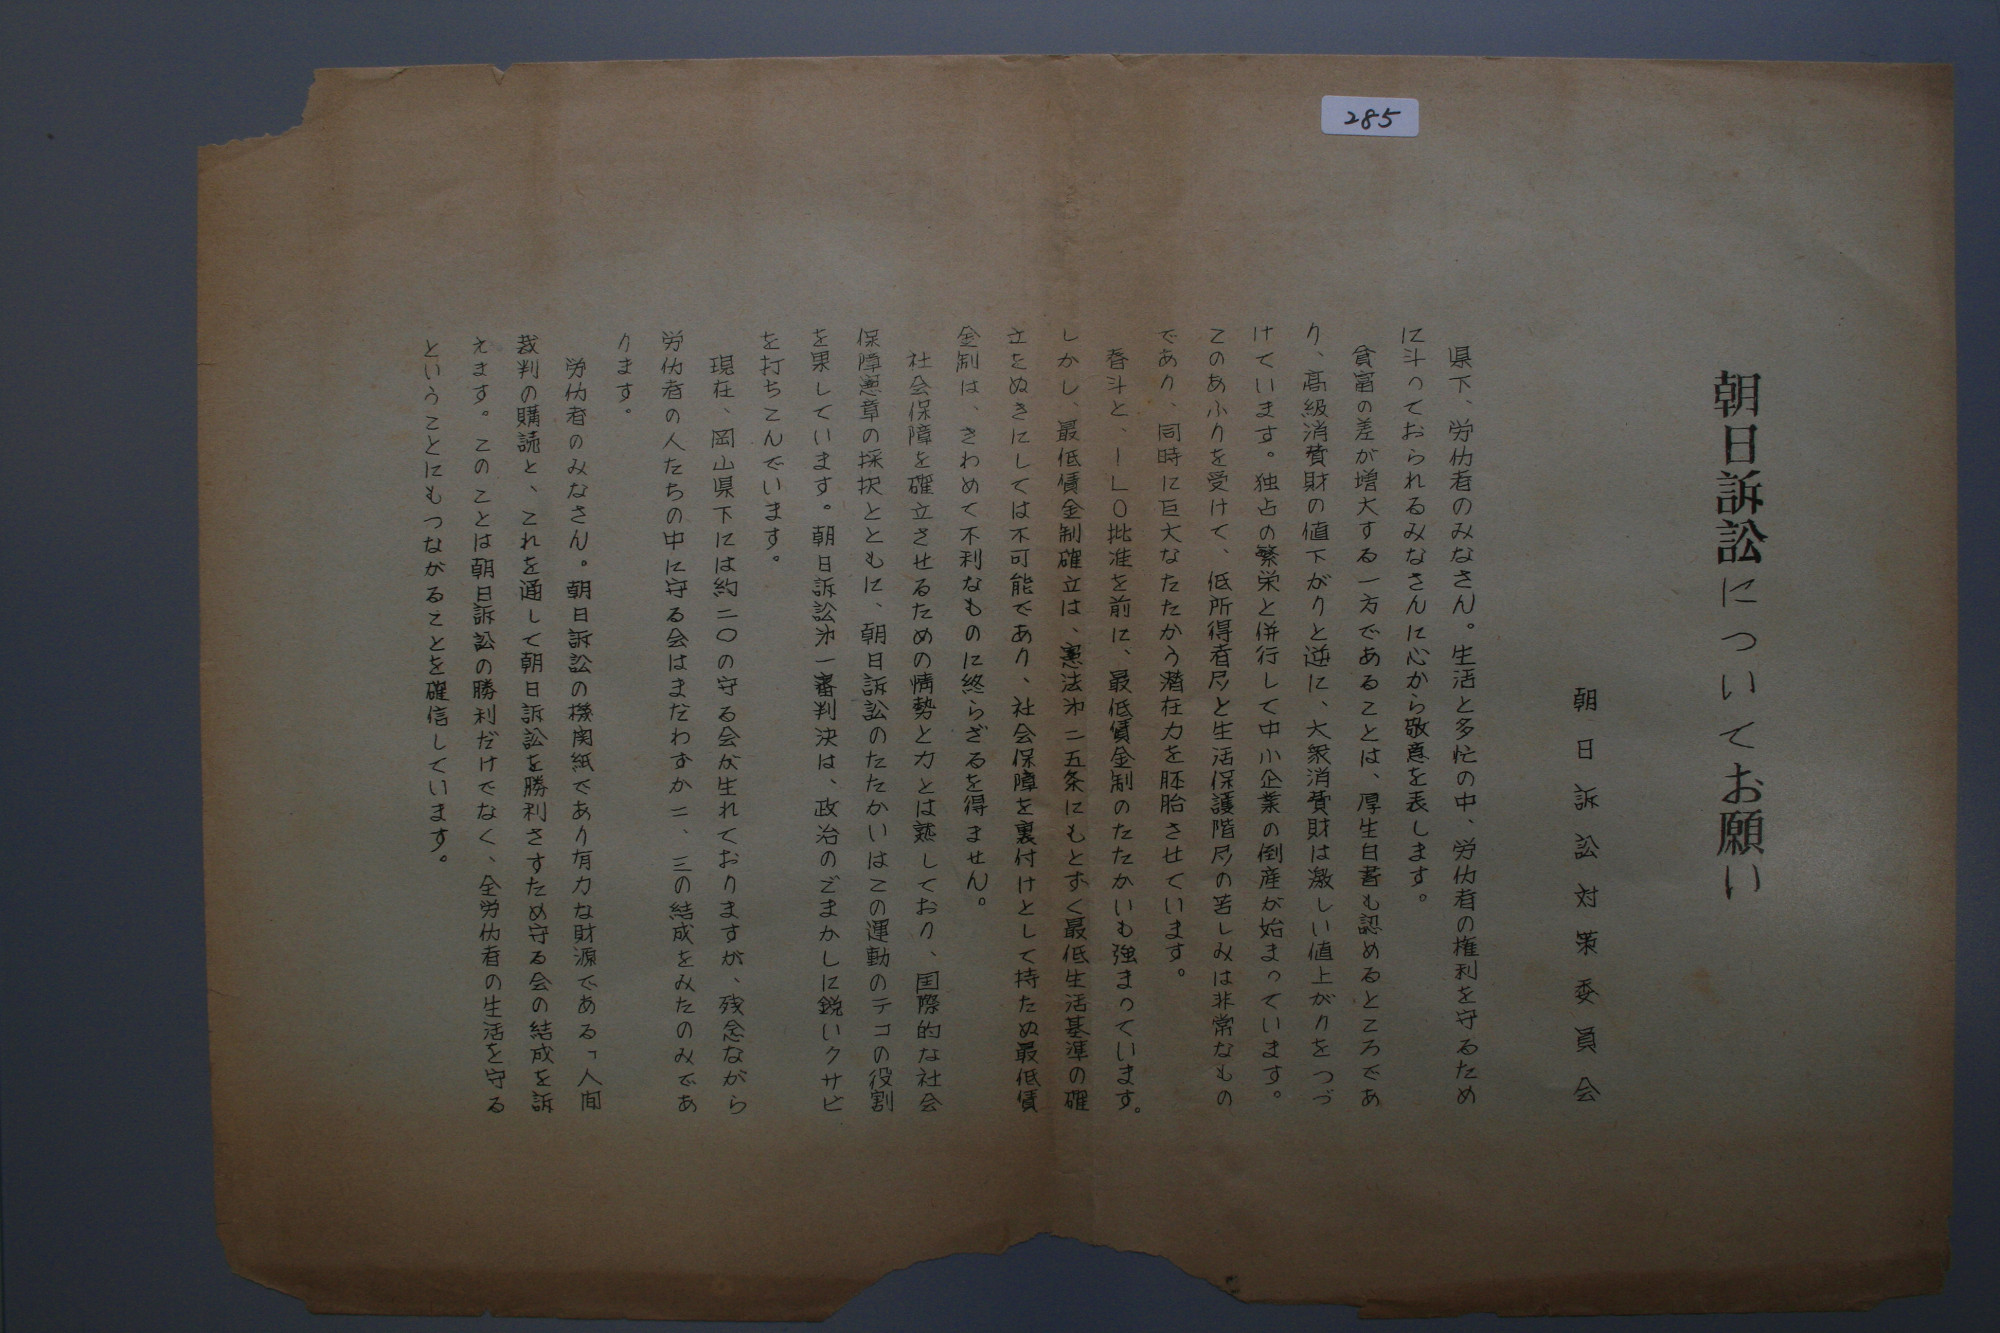 285
朝日訴訟についてお願い
朝日訴訟対策委員会
県下、労仂者のみなさん。生活と多忙の中、労仂者の権利を守るため
に斗っておられるみなさんに心から敬意を表します。
貧富の差が増大する一方であることは、厚生白書も認めるところであ
り、高級消費財の値下がりと逆に、大衆消費財は激しい値上がりをつづ
けています。独占の繁栄と併行して中小企業の倒産が始まっています。
このあふりを受けて、低所得者层と生活保護階层の苦しみは非常なもの
であり、同時に巨大なたたかう潜在力を胚胎させています。
春斗と、ILO批准を前に、最低賃金制のたたかいも強まっています。
しかし、最低賃金制確立は、憲法㐧二五条にもとずく最低生活基準の確
立をぬきにしては不可能であり、社会保障を裏付けとして持たぬ最低賃
金制は、きわめて不利なものに終らざるを得ません。
社会保障を確立させるための情勢と力とは熟しており、国際的な社会
保障憲章の採択とともに、朝日訴訟のたたかいはこの運動のテコの役割
を果しています。朝日訴訟㐧一審判決は、政治のごまかしに鋭いクサビ
を打ちこんでいます。
現在、岡山県下には約二〇の守る会が生れておりますが、残念ながら
労仂者の人たちの中に守る会はまだわずか二、三の結成をみたのみであ
ります。
労仂者のみなさん。朝日訴訟の機関紙であり有力な財源である「人間
裁判の購読と、これを通して朝日訴訟を勝利さすため守る会の結成を訴
えます。このことは朝日訴訟の勝利だけでなく、全労仂者の生活を守る
ということにもつながることを確信しています。